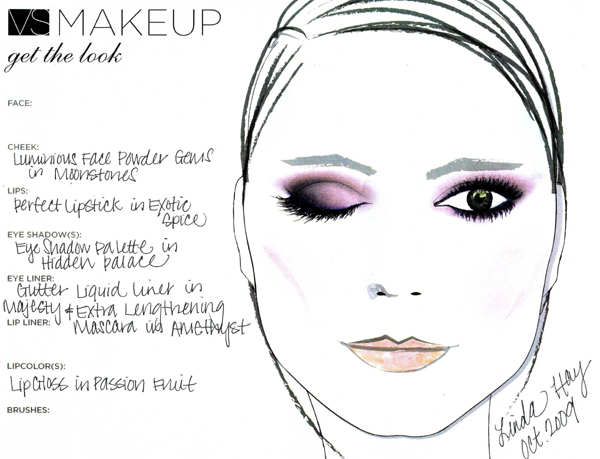 VS MAKEUP
get the look
FACE:
CHEEK:
Luminious Face Powder Gems
in Moonstones
LIPS:
Perfect Lipstick in Exotic
Spice
EYE SHADOW(S):
Eye Shadow palette in
Hidden palace
EYE LINER:
Glitter Liquid liner in
Majesty & Extra Lengthening
LIP LINER: Mascara in Amethyst
LIPCOLOR(S):
LipGloss in Passion Fruit
BRUSHES:
Linda Hay
Oct. 2009